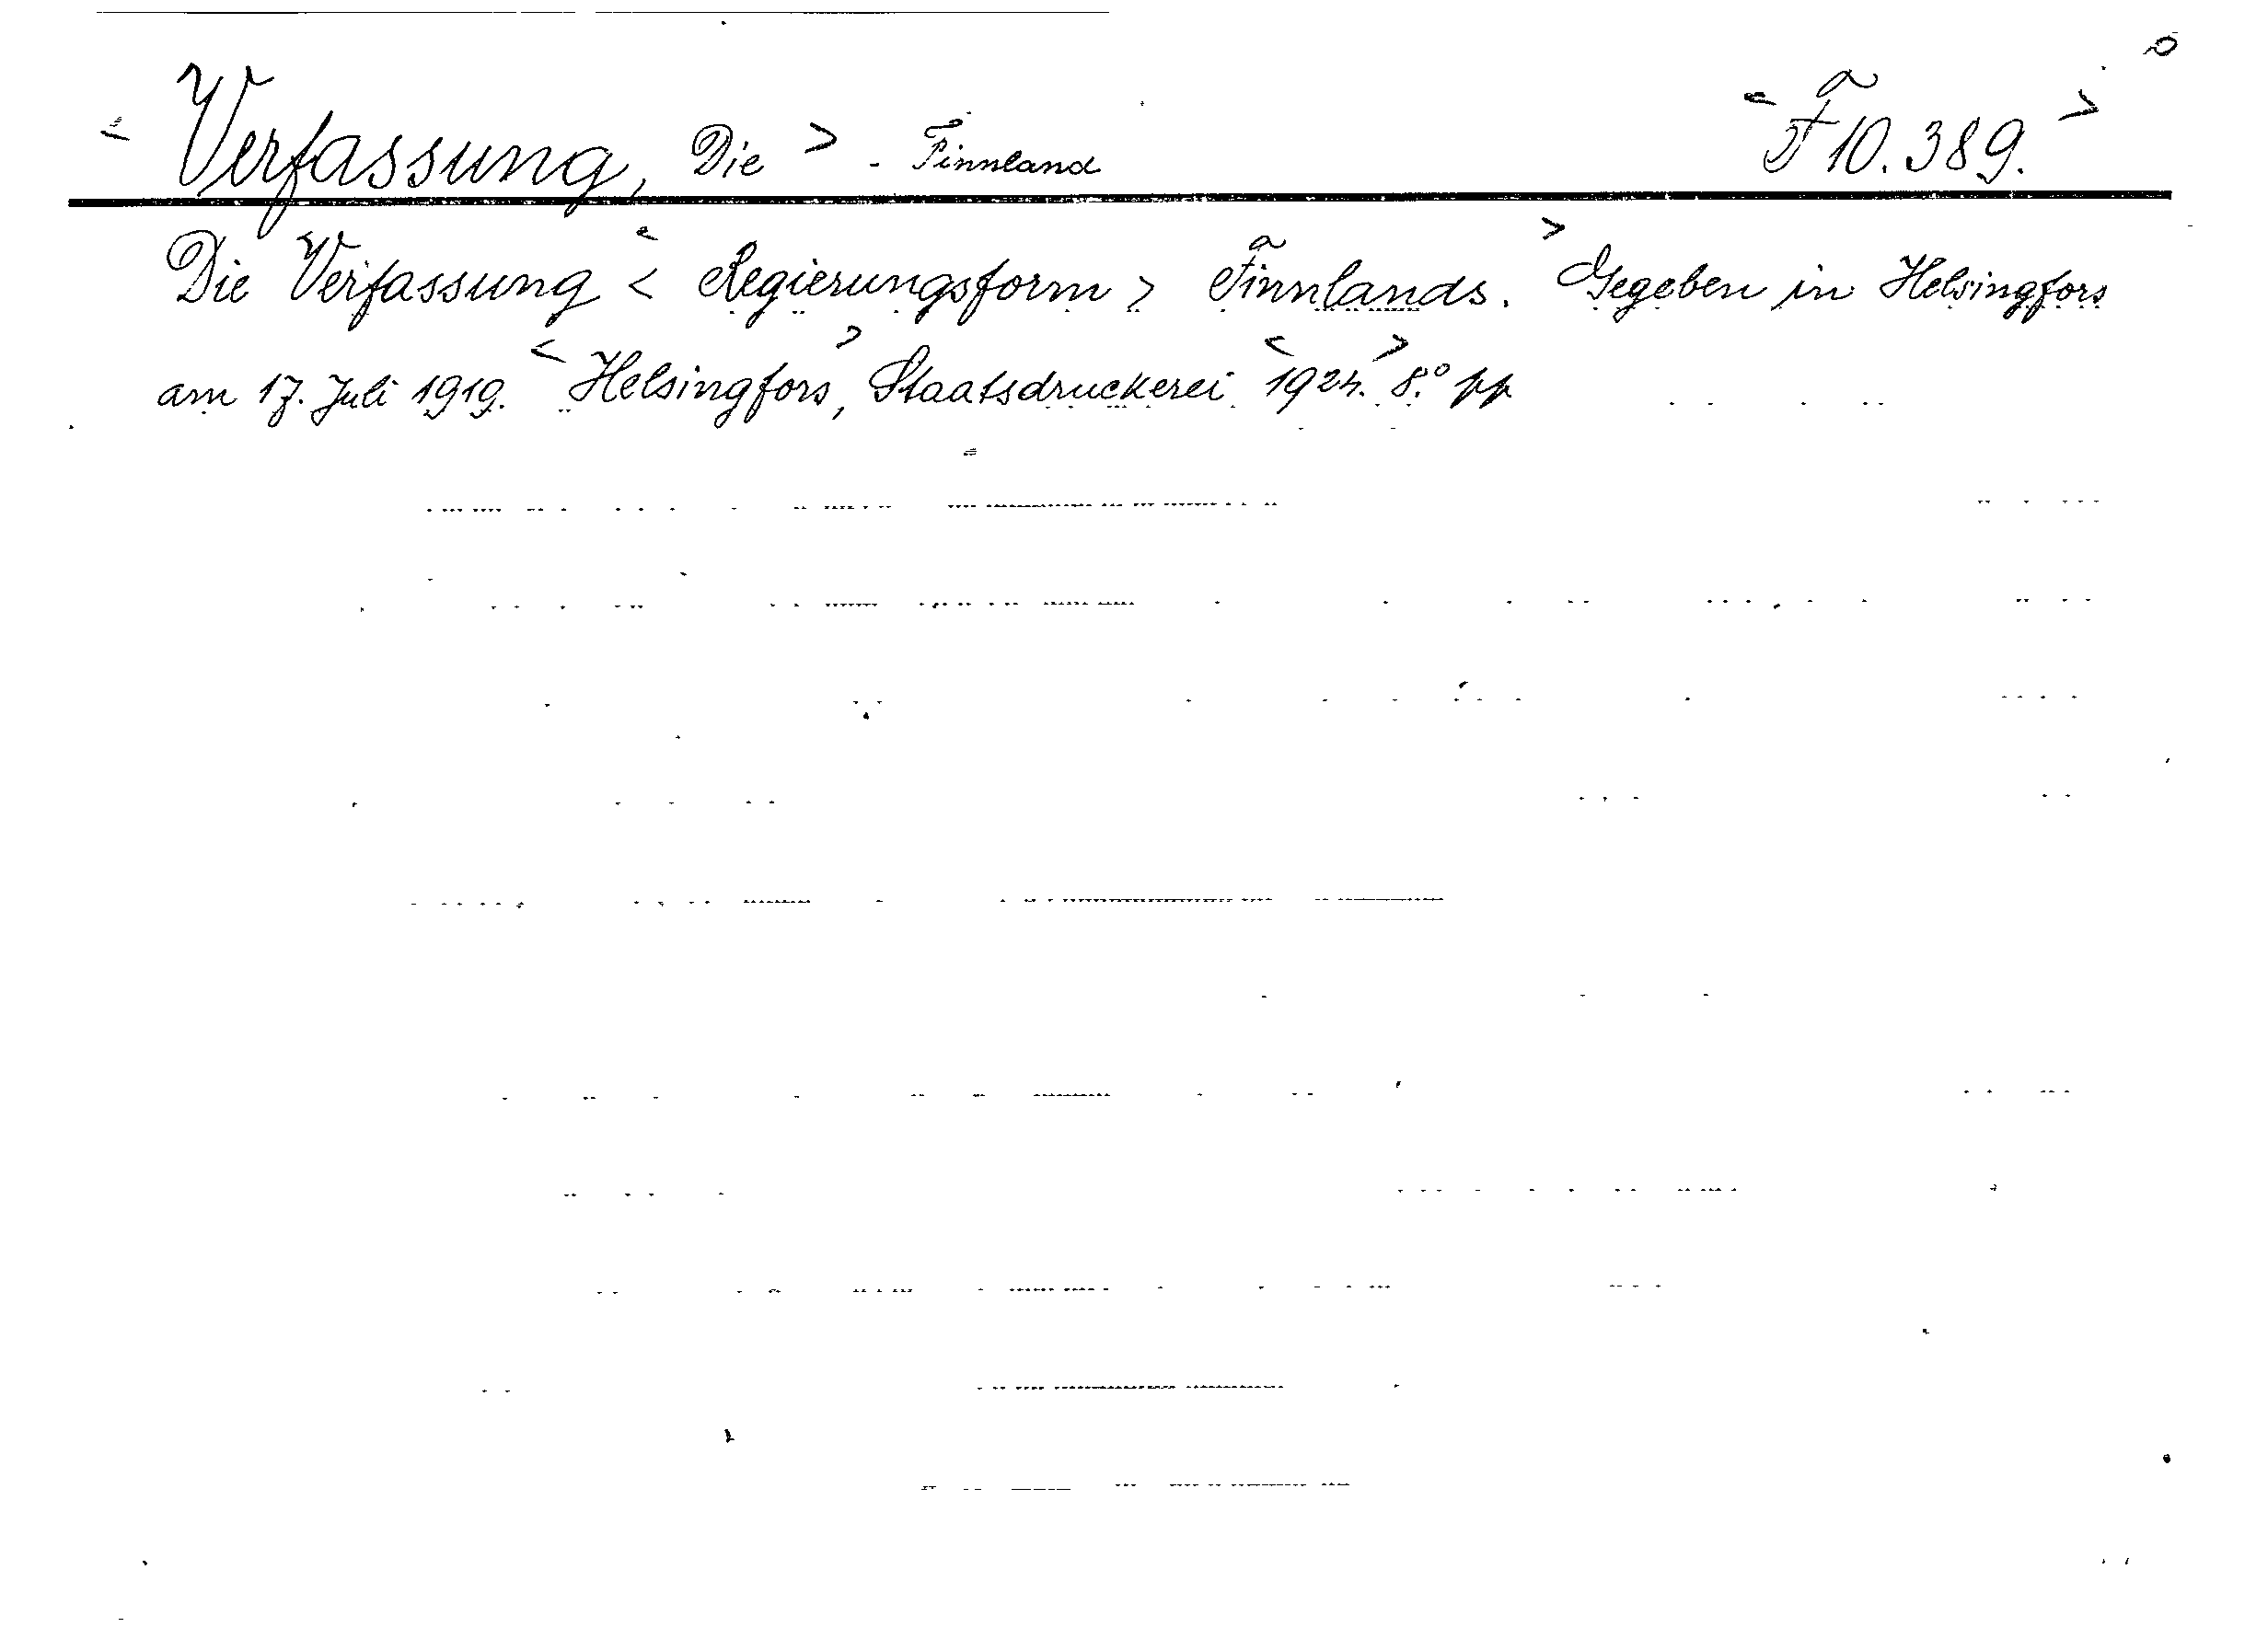 < Verfassung, Die > - Finnland < F 10.389. >
Die Verfassung < Regierungsform > Finnlands. > Gegeben in Helsingfors
am 17. Juli 1919. < Helsingfors, > Staatsdruckerei < 1924. > 8.° pp